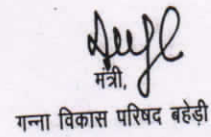 मंत्री,
गन्ना विकास परिषद बहेड़ी